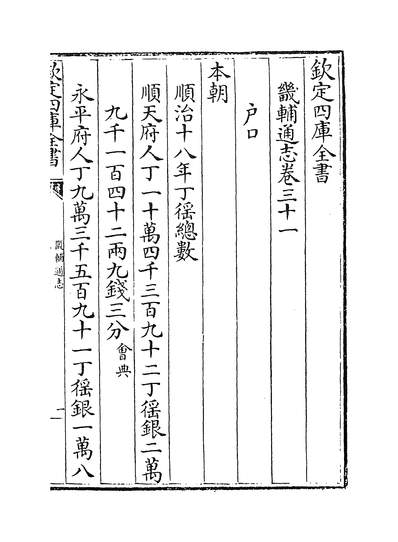 欽定四庫全書
畿輔通志卷三十一
户口
本朝
順治十八年丁徭總數
順天府人丁一十萬四千三百九十二丁徭銀二萬
九千一百四十二兩九錢三分會典
永平府人丁九萬三千五百九十一丁徭銀一萬八
欽定四庫全書
畿輔通志
一